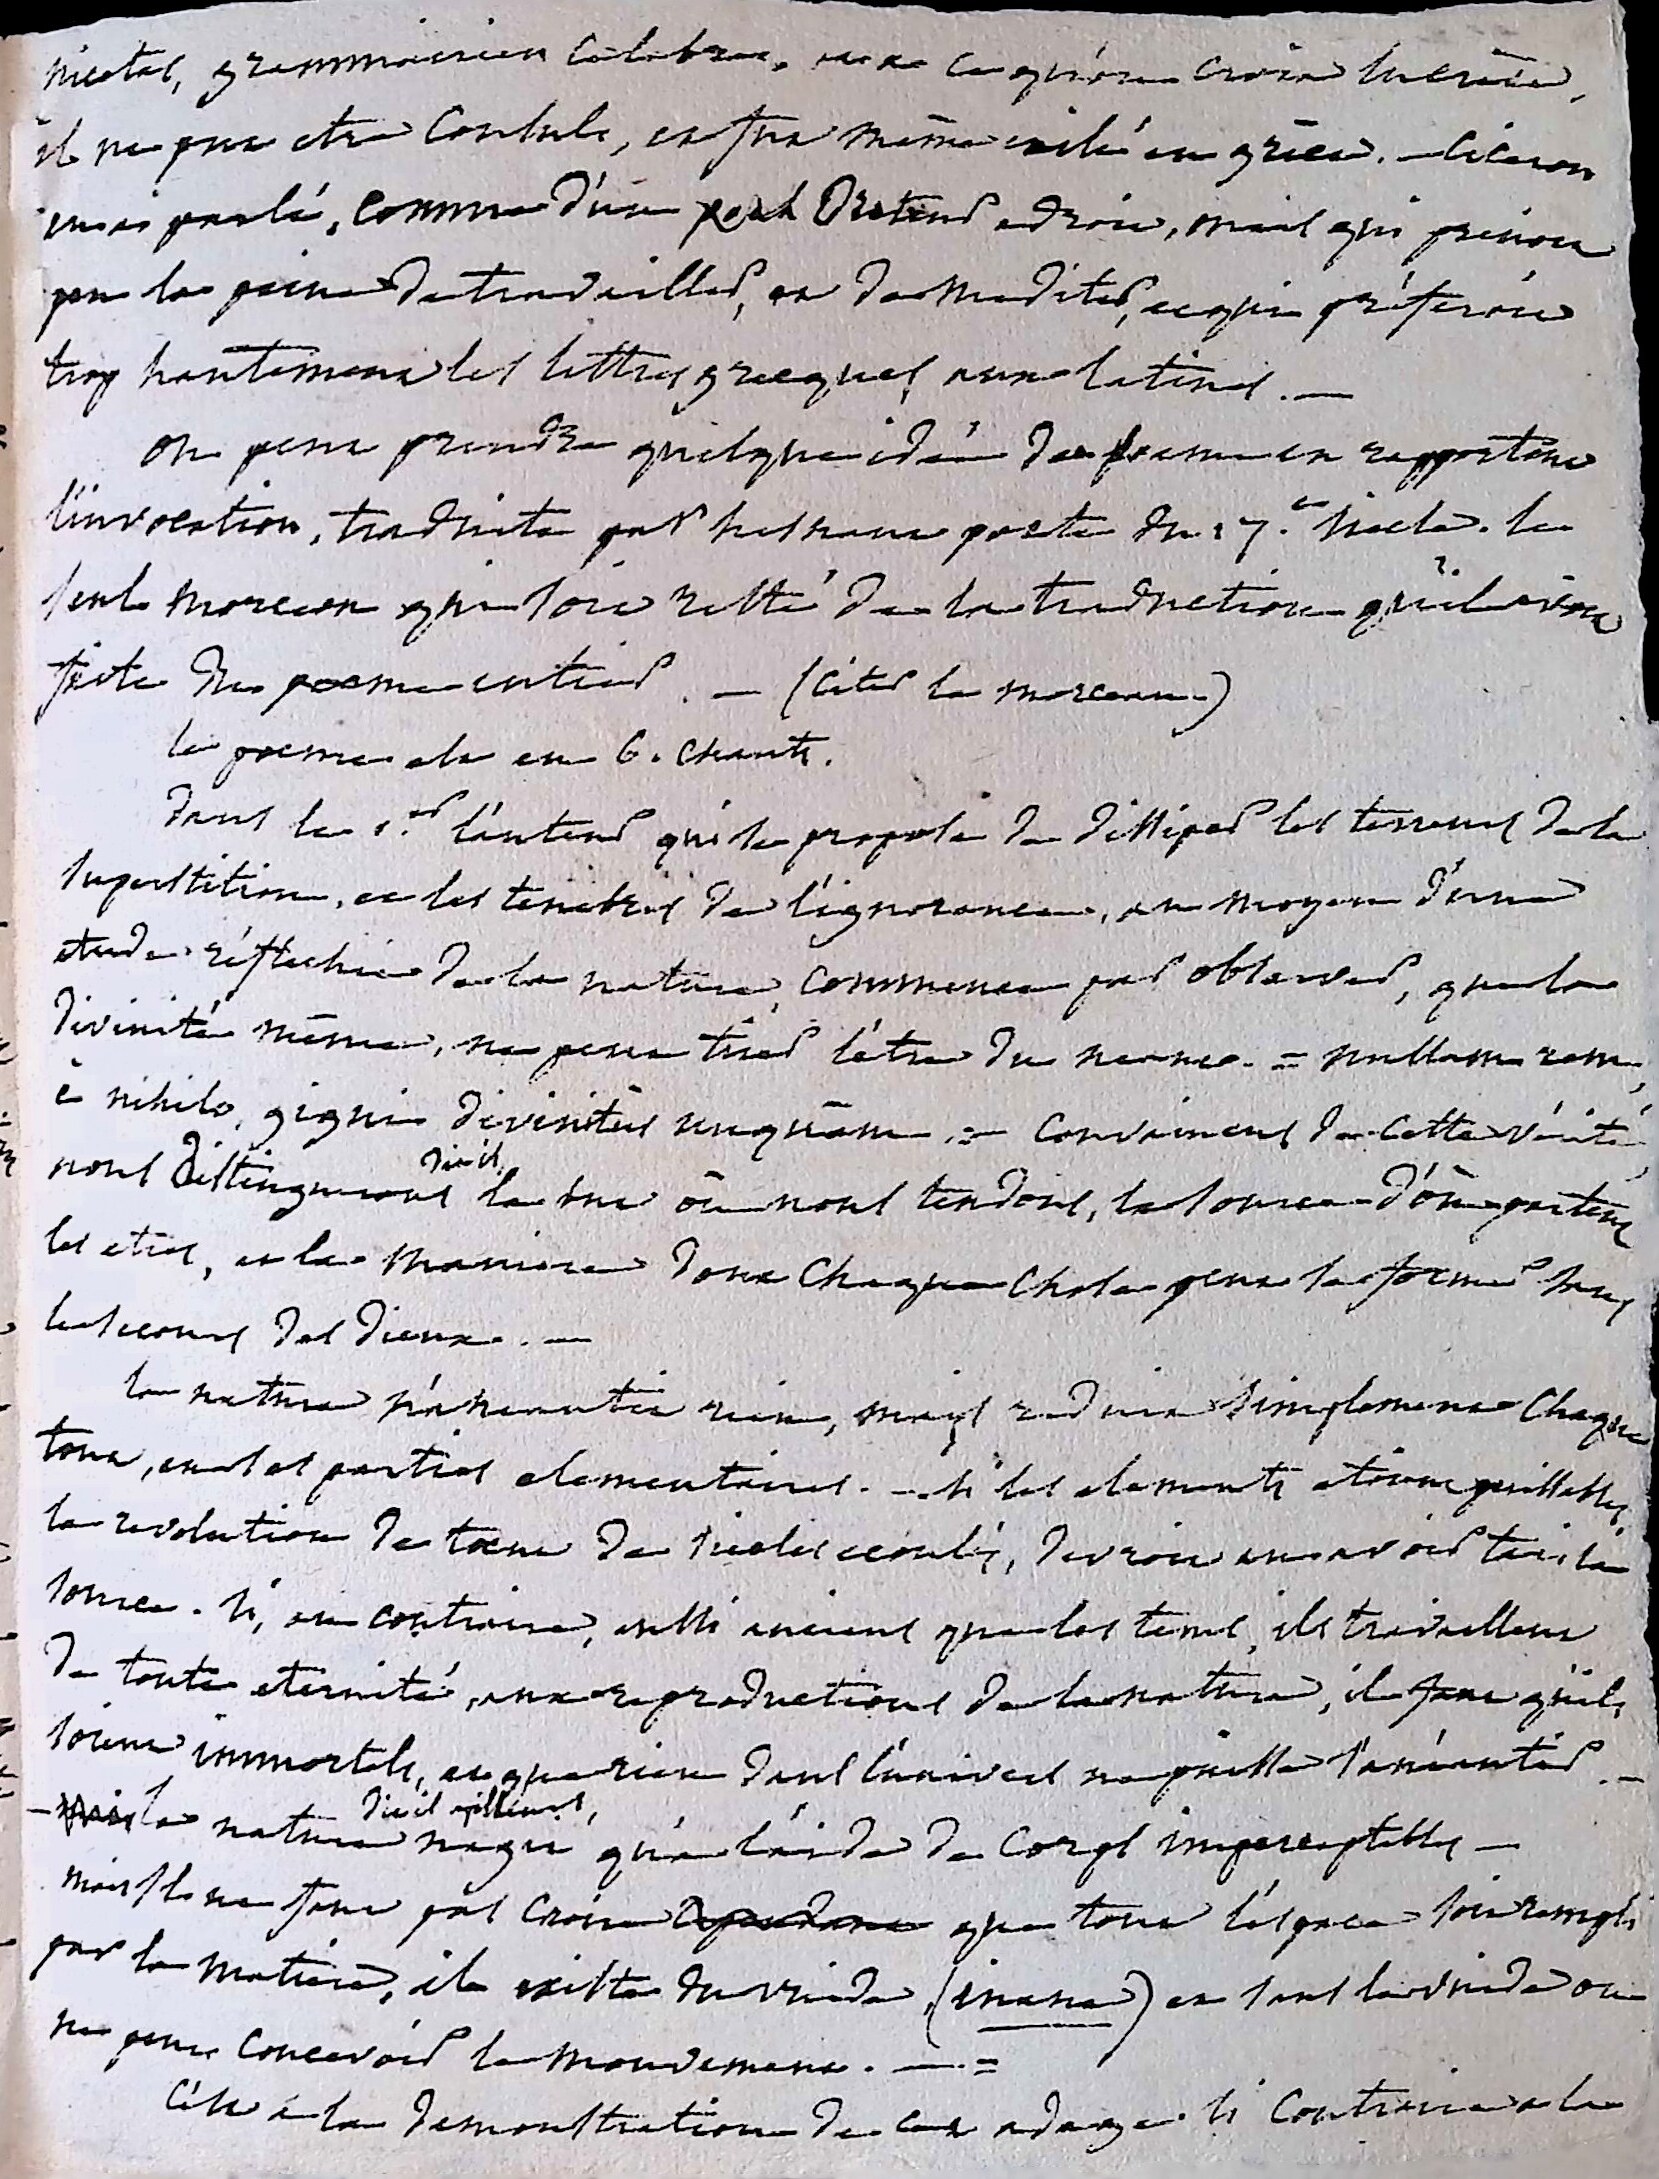 nicetas, grammairien celebre, aux ce qu'on croit lucrèce,
il ne put etre Consul, et fut même exilé en grèce. – Ciceron
en a parlé, comme d'un Orateur adroit, mais qui prenoit
peu la peine de travailler, et de mediter, et qui préferoit
trop hautement les lettres grecques, aux latines. —
on peut prendre quelque idée du poeme en rapportant
l'invocation, traduite par hesnaut poete du 17.e siecle. le
seul morceau qui soit resté de la traduction qu'il avoit
faite du poeme entier. – (Citer le morceau)
le poeme est en 6. chants.
dans le 1.er l'auteur qui se propose de dissiper les terreurs de la
superstition, et les tenebres de l'ignorance, au moyen d'une
etude réflechie de la nature, commence par observer, que la
divinité même, ne peut tirer l'être du neant. = nullam rem,
è nihilo, gigni divinitùs unquàm. = Convaincus de cette vérité,
nous distinguerons dit-il, le but où nous tendons, la source d'où partent
les etres, et la maniere dont chaque chose peut se former sans
le secours des dieux. —
la nature n'aneantit rien, mais reduit simplement chaque
tout, en ses parties elementaires. – si les elements etoient perissables,
la revolution de tant de siecles ecoulés, devroit en avoir tari la
source. si, au contraire, aussi anciens que les tems, ils travaillent
de toute eternité, aux reproductions de la nature, il faut qu'ils
soient immortels, et que rien dans l'univers ne puisse s'anéantir. –
– mais la nature dit-il ailleurs, n'agit qu'à l'aide de corps imperceptibles –
mais il ne faut pas croire cependant que tout l'espace soit rempli
par la matiere, il existe du vuide (inane) et sans le vuide on
ne peut concevoir le mouvement. — =
C'est à la demonstration de cet adage si contraire à la